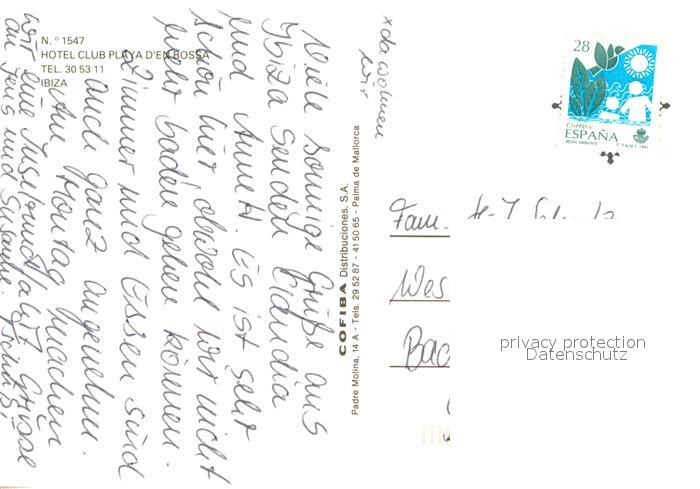 N.º 1547
HOTEL CLUB PLAYA D'EN BOSSA
TEL. 30 53 11
IBIZA
x da wohnen
wir
Viele sonnige Grüße aus
Ibiza sendet Claudia
und Annett. Es ist sehr
schön hier, obwohl wir nicht
mehr baden gehen können.
Zimmer und Essen sind
auch ganz angenehm.
Am Montag machen
wir eine Inselrundfahrt. Grüsse
an Jens und Susanne.
COFIBA Distribuciones, S.A.
Padre Molina, 14 A - Tels. 29 52 87 - 41 50 65 - Palma de Mallorca
28
Correos
ESPAÑA
MEDIO AMBIENTE
Fam.
Wes
Bad
privacy protection
Datenschutz